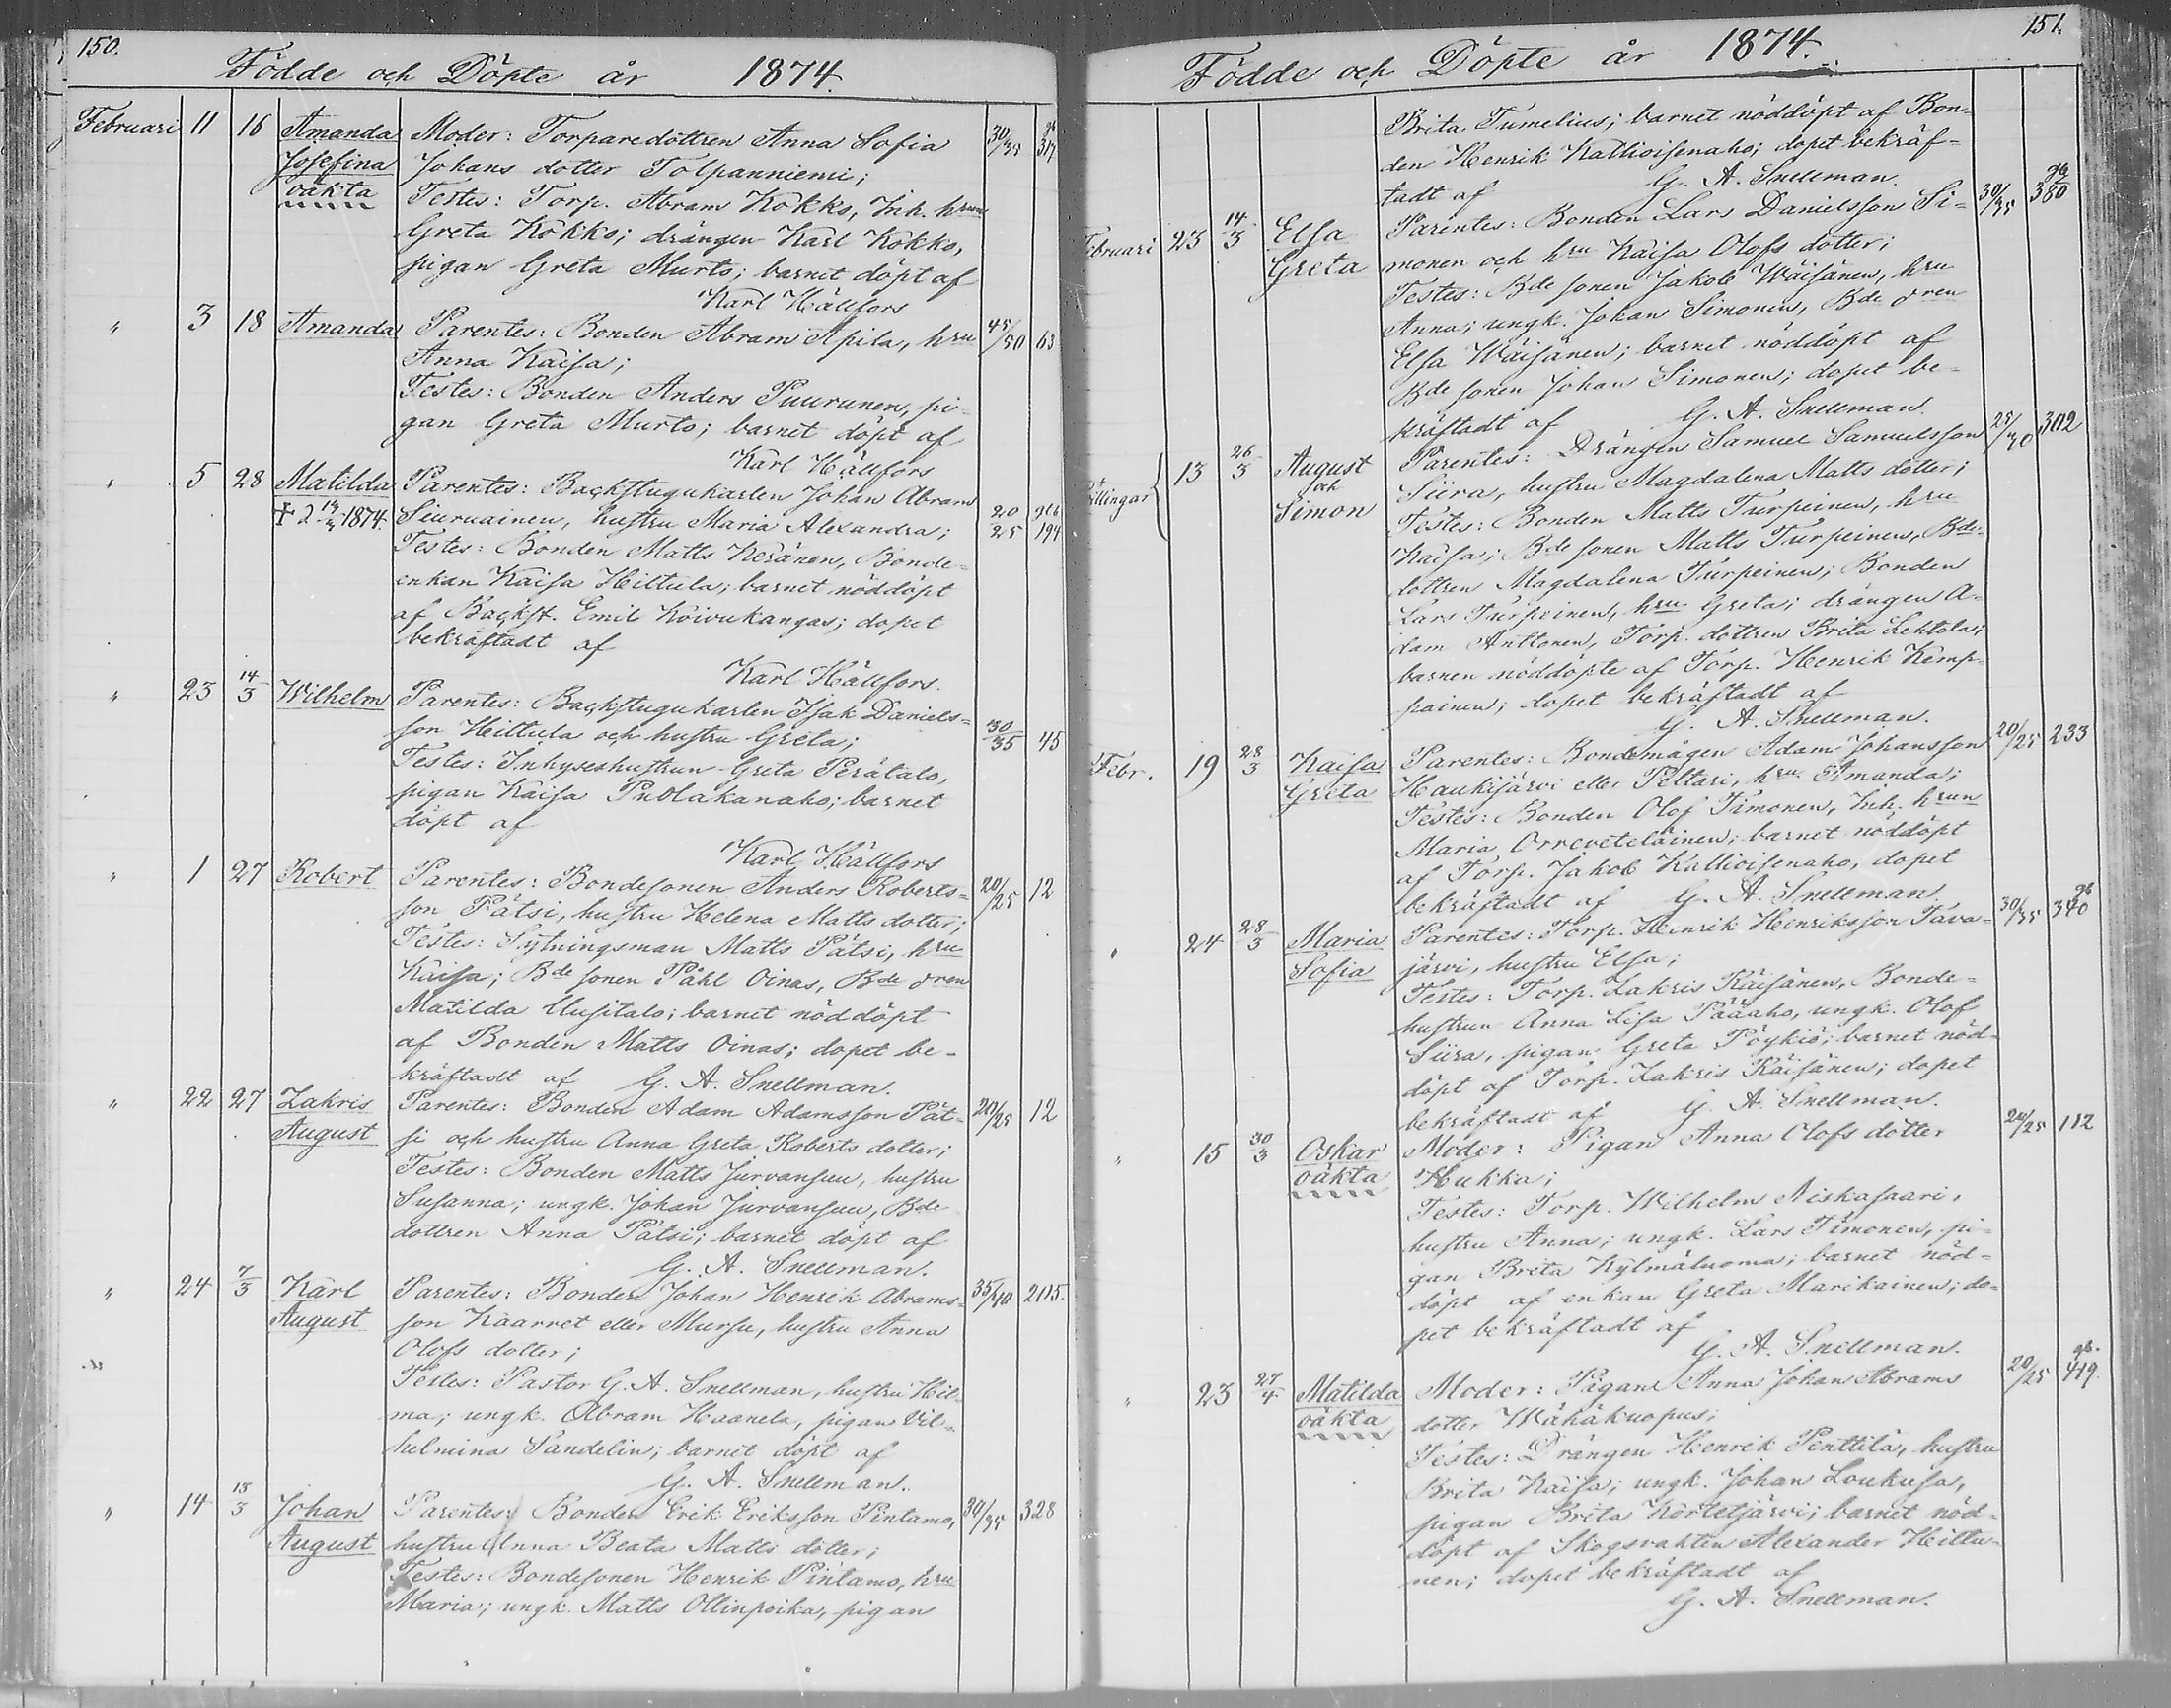 150.
Födde och Döpte år 1874.
Februari 11 16 Amanda Moder: Torparedottren Anna Sofia 30/35 gb 317
Josefina Johans dotter Tolpanniemi;
oäkta Testes: Torp. Abram Kokko, Inh. hrun
Greta Kokko; drängen Karl Kokko,
pigan Greta Murto; barnet döpt af
Karl Hällfors
" 3 18 Amanda Parentes: Bonden Abram Apila, hru 45/50 63
Anna Kaisa;
Testes: Bonden Anders Puurunen, pi-
gan Greta Murto; barnet döpt af
Karl Hällfors
" 5 28 Matilda Parentes: Backstugukarlen Johan Abram
1874. Siuruainen, hustru Maria Alexandra; 20/25 194
Testes: Bonden Matts Keränen, Bonde-
enkan Kaisa Hiltula; barnet nöddöpt
af Backst. Emil Koivukangas; dopet
bekräftadt af
Karl Hällfors.
" 23 14/3 Wilhelm Parentes: Backstugukarlen Isak Daniels-
son Hiltula och hustru Greta; 30/35 45
Testes: Inhyseshustrun Greta Perätalo,
pigan Kaisa Puolakanaho; barnet
döpt af
Karl Hällfors
" 1 27 Robert Parentes: Bondesonen Anders Roberts- 20/25 12
son Pätsi, hustru Helena Matts dotter;
Testes: Sytningsman Matts Pätsi, hru
Kaisa; Bde sonen Påhl Oinas, Bde dren
Matilda Uusitalo; barnet nöddöpt
af Bonden Matts Oinas; dopet be-
kräftadt af G. A. Snellman.
" 22 27 Zakris Parentes: Bonden Adam Adamsson Pät- 20/25 12
August si och hustru Anna Greta Roberts dotter;
Testes: Bonden Matts Jurvansuu, hustru
Susanna; ungk. Johan Jurvansuu, Bde
dottren Anna Pätsi; barnet döpt af
G. A. Snellman.
" 24 7/3 Karl Parentes: Bonden Johan Henrik Abrams- 35/40 205.
August son Kaarret eller Mursu, hustru Anna
Olofs dotter;
Testes: Pastor G. A. Snellman, hustru Hil-
ma; ungk. Abram Haanela, pigan Vil-
helmina Sandelin; barnet döpt af
G. A. Snellman.
" 14 15/3 Johan Parentes: Bonden Erik Eriksson Pintamo, 30/35 328
August hustru Anna Beata Matts dotter;
Testes: Bondesonen Henrik Pintamo, hru
Maria; ungk. Matts Ollinpoika, pigan
151.
Födde och Döpte år 1874.
Brita Tumelius; barnet nöddöpt af Bon-
den Henrik Kallioisenaho; dopet bekräf-
tadt af G. A. Snellman.
Februari 23 14/3 Elsa Parentes: Bonden Lars Danielsson Si- 30/35 gb 380
Greta monen och hru Kaisa Olofs dotter;
Testes: Bde sonen Jakob Wäisänen, hru
Anna; ungk. Johan Simonen, Bde dren
Elsa Wäisänen; barnet nöddöpt af
Bde sonen Johan Simonen; dopet be-
kräftadt af G. A. Snellman.
" Tvillingar 13 26/3 August Parentes: Drängen Samuel Samuelsson 25/30 302
och Siira, hustru Magdalena Matts dotter;
Simon Testes: Bonden Matts Turpeinen, hru
Kaisa; Bde sonen Matts Turpeinen, Bde-
dottren Magdalena Turpeinen; Bonden
Lars Turpeinen, hru Greta; drängen A-
dam Anttonen, Torp. dottren Brita Lehtola;
barnen nöddöpte af Torp. Henrik Kemp-
painen; dopet bekräftadt af
G. A. Snellman.
Febr. 19 28/3 Kaisa Parentes: Bondemågen Adam Johansson 20/25 233
Greta Haukijärvi eller Peltari, hru Amanda;
Testes: Bonden Olof Timonen, Inh. hrun
Maria Orreveteläinen; barnet nöddöpt
af Torp. Jakob Kallioisenaho, dopet
bekräftadt af G. A. Snellman.
" 24 28/3 Maria Parentes: Torp. Henrik Henriksson Tava- 30/35 gb 340
Sofia järvi, hustru Elsa;
Testes: Torp. Zakris Räisänen, Bonde-
hustrun Anna Lisa Pääaho, ungk. Olof
Siira, pigan Greta Pöykiö; barnet nöd-
döpt af Torp. Zakris Räisänen; dopet
bekräftadt af G. A. Snellman.
" 15 30/3 Oskar Moder: Pigan Anna Olofs dotter 20/25 112
oäkta Hukka;
Testes: Torp. Wilhelm Niskasaari,
hustru Anna; ungk. Lars Timonen, pi-
gan Brita Kylmäluoma; barnet nöd-
döpt af enkan Greta Marikainen; do-
pet bekräftadt af
G. A. Snellman.
" 23 27/4 Matilda Moder: Pigan Anna Johan Abrams 20/25 gb. 419.
oäkta dotter Wähäkuopus;
Testes: Drängen Henrik Penttilä, hustru
Brita Kaisa; ungk. Johan Loukusa,
pigan Brita Kortetjärvi; barnet nöd-
döpt af Skogsvakten Alexander Hiltu-
nen; dopet bekräftadt af
G. A. Snellman.